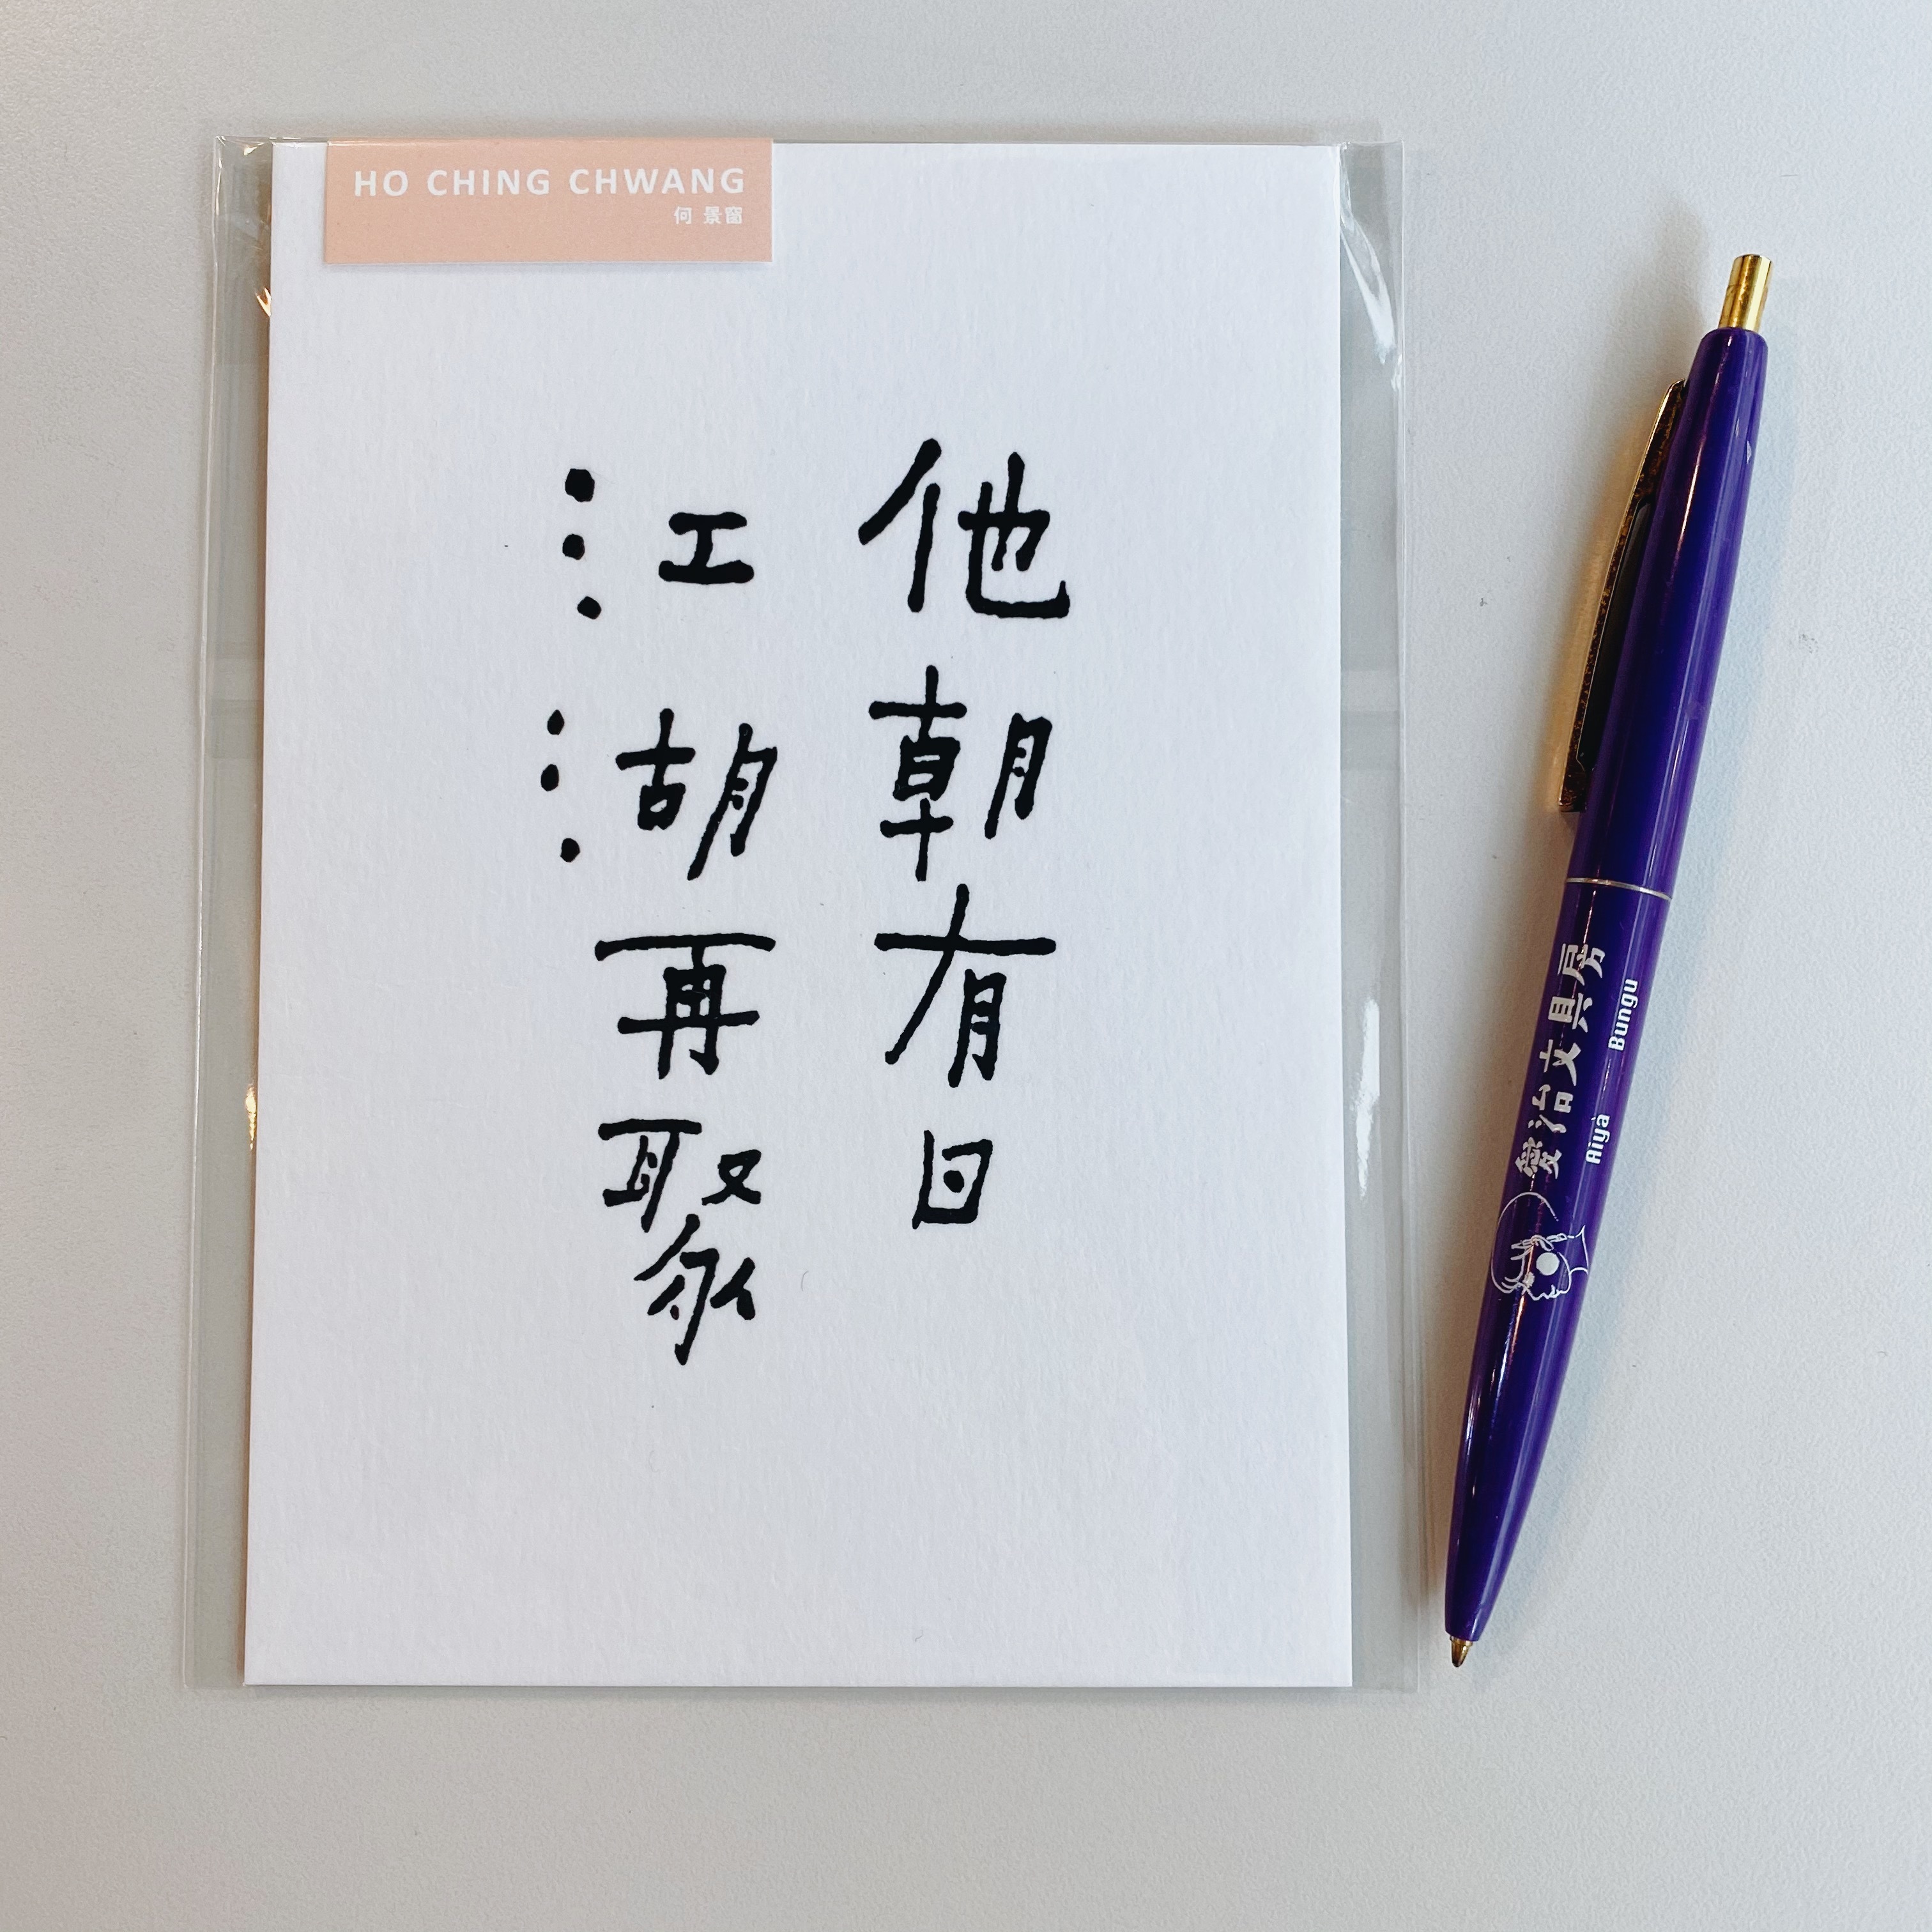 HO CHING CHWANG
何景窗
他朝有日
江湖再聚
愛治文具房
Aiya Bungu